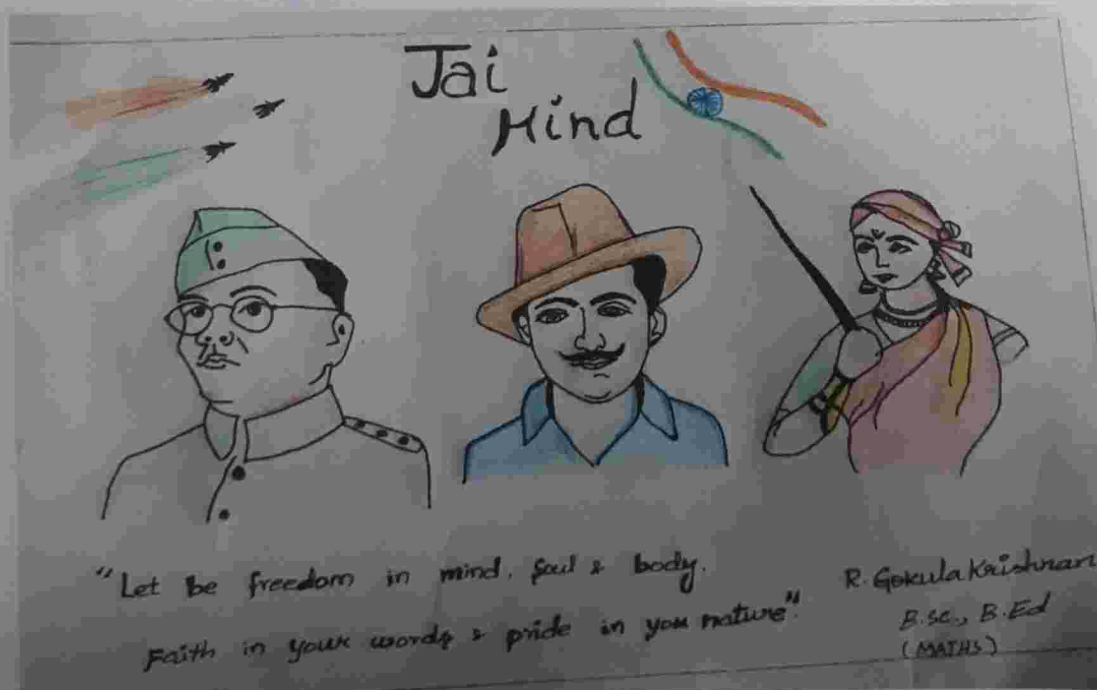 Jai
Hind
"Let be freedom in mind, soul & body.
Faith in your words & pride in you nature".
R. GokulaKrishnan
B.sc., B.Ed
(MATHS)